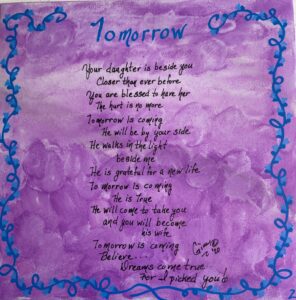 Tomorrow
Your daughter is beside you
Closer than ever before
You are blessed to have her
The hurt is no more
Tomorrow is coming
He will be by your side
He walks in the light
beside me
He is grateful for a new life
Tomorrow is coming
He is True
He will come to take you
and you will become
his wife
Tomorrow is coming
Believe....
Dreams come true
For I picked you